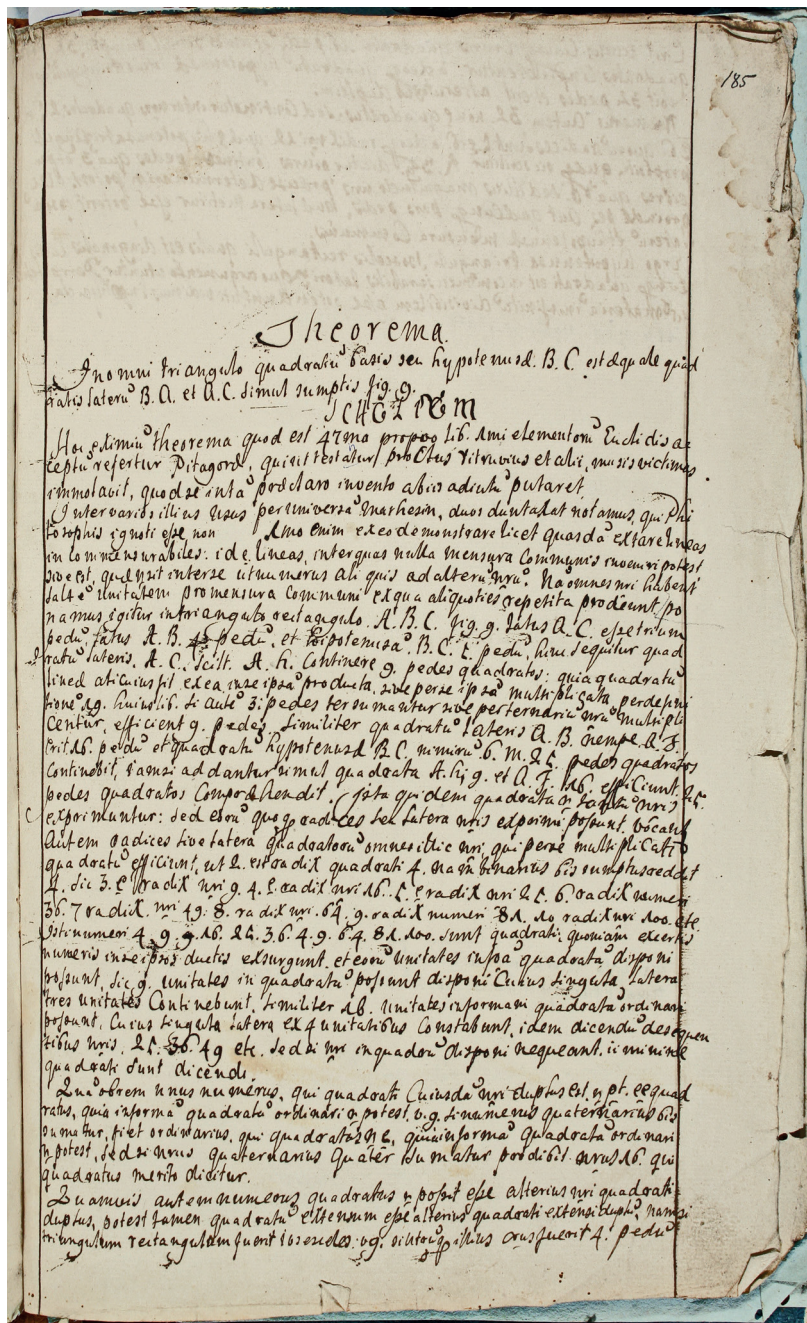 185
Theorema.
In omni triangulo quadratū basis seu hypotenusæ. B. C. est æquale quad
ratis laterū B. A. et A.C. simul sumptis fig. 9.
SCHOLIVM
Hoc eximiū theorema quod est 47ma propoo lib. 1mi elementorū Euclidis ac
ceptū refertur Pitagoræ, qui ut testatur Proclus Vitruvius et alii, musis victimas
immolavit, quod se in tā præclaro invento ab iis adiutū putaret.
Inter varios illius usus per universā mathesin, duos duntaxat notamus, qui Phi
losophis ignoti esse non 1mo enim ex eo demonstrare licet quasdā extare lineas
incommensurabiles: id e lineas, inter quas nulla mensura communis inveniri potest
sive est, quæ sit inter se ut numerus aliquis ad alterū nrū. Nā omnes nri habent
saltē unitatem pro mensura communi ex qua aliquoties repetita prodeunt, po
namus igitur in triangulo rectangulo. A. B. C. fig. 9. latus A. C. esse trium
pedū, latus A. B. 4 pedū, et hipotenusā B. C. 5. pedū, hinc sequitur quad
ratū lateris. A. C. scilt. A. h. continere 9. pedes quadratos: quia quadratū
lineæ alicuius fit ex ea in se ipsa producta, sive per se ipsā multiplicata, per defini
tione 19. huius lib. si autē 3: pedes ter sumantur sive per ternariū nrū multipli
centur, efficient 9. pedes, similiter quadratū lateris A. B. nempe A. F.
erit 16. pedū et quadratū hypotenusæ B C. nimirū B. M. 25. pedes quadratos
continebit, iam si addantur simul quadrata A. h; 9. et A. F. 16. efficiunt. 25.
pedes quadratos comprehendit. Ista quidem quadrata n tantū nris
exprimuntur: sed eorū quoq radices seu latera nris exprimi possunt. vocant
autem radices sive latera quadratorū omnes illic nri, qui per se multiplicati
quadratū efficiunt, ut 2. est radix quadrati 4. nam binarius bis sumptus reddit
4. sic 3. e radix nri 9. 4. e radix nri 16. 5. e radix nri 25. 6. radix numeri
36. 7 radix. nri 49. 8. radix nri. 64. 9. radix numeri 81. 10 radix nri 100. etc
Isti numeri 4. 9. 16. 25. 3.6. 4.9. 64. 81. 100. sunt quadrati quoniam ex certis
numeris in se ipsos ductis exsurgunt, et eorū unitates in formā quadratā disponi
possunt, sic 9. unitates in quadratū possunt disponi cuius singula latera
tres unitates continebunt, similiter 16. unitates in formam quadratā ordinari
possunt, cuius singula latera ex 4 unitatibus constabunt, idem dicendū de sequen
tibus nris, 25. 36. 49 etc. sed si nri in quadrū disponi nequeant. ii minime
quadrati sunt dicendi.
Quā obrem unus numerus, qui quadrati cuiusdā nri duplus est, n pt. ee quad
ratus, quia in formā quadratā ordinari n potest, v.g. si numerus quaternarius bis
sumatur, fiet octonarius, qui quadratus n e, quia in formā quadratā ordinari
n potest, sed si nrus quaternarius quater sumatur prodibit nrus 16. qui
quadratus merito dicitur.
Quamvis autem numerus quadratus n possit esse alterius nri quadrati
duplus, potest tamen quadratū extensum esse alterius quadrati extensi duplū, nam si
triangulum rectangulum fuerit isosceles: v.g. si utrūq illius crus fuerit 4. pedū